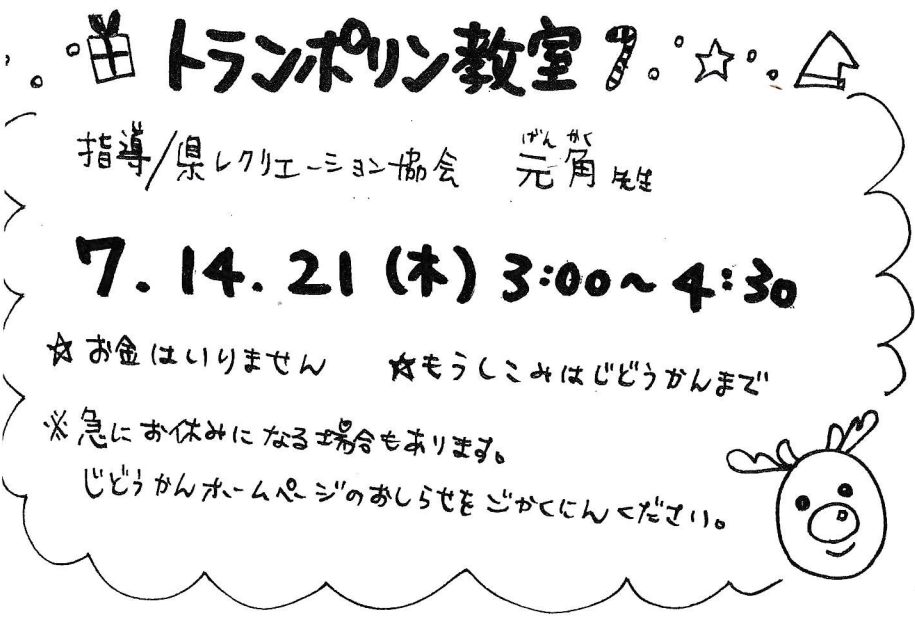 トランポリン教室
指導/県レクリエーション協会 元角先生
げんかく
7.14.21(木)3:00~4:30
☆お金はいりません ☆もうしこみはじどうかんまで
※急にお休みになる場合もあります。
じどうかんホームページのおしらせをごかくにんください。